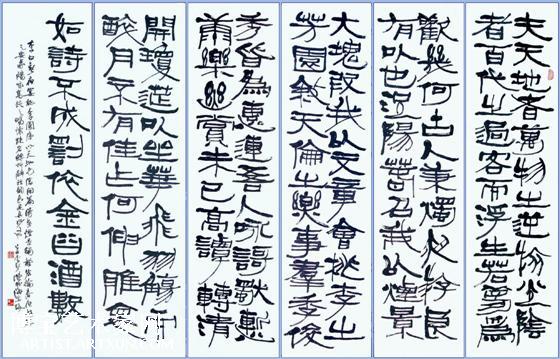 夫天地者萬物之逆旅光陰
者百代之過客而浮生若夢為
歡幾何古人秉燭夜遊良
有以也況陽春召我以煙景
大塊假我以文章會桃李之
芳園敘天倫之樂事羣季俊
秀皆為惠連吾人詠謌獨慚
康樂幽賞未已高談轉清
開瓊筵以坐華飛羽觴而
醉月不有佳作何伸雅
如詩不成罰依金谷酒數
李白春夜宴桃李園序
博宝艺术家网
ARTIST.ARTXUN.COM